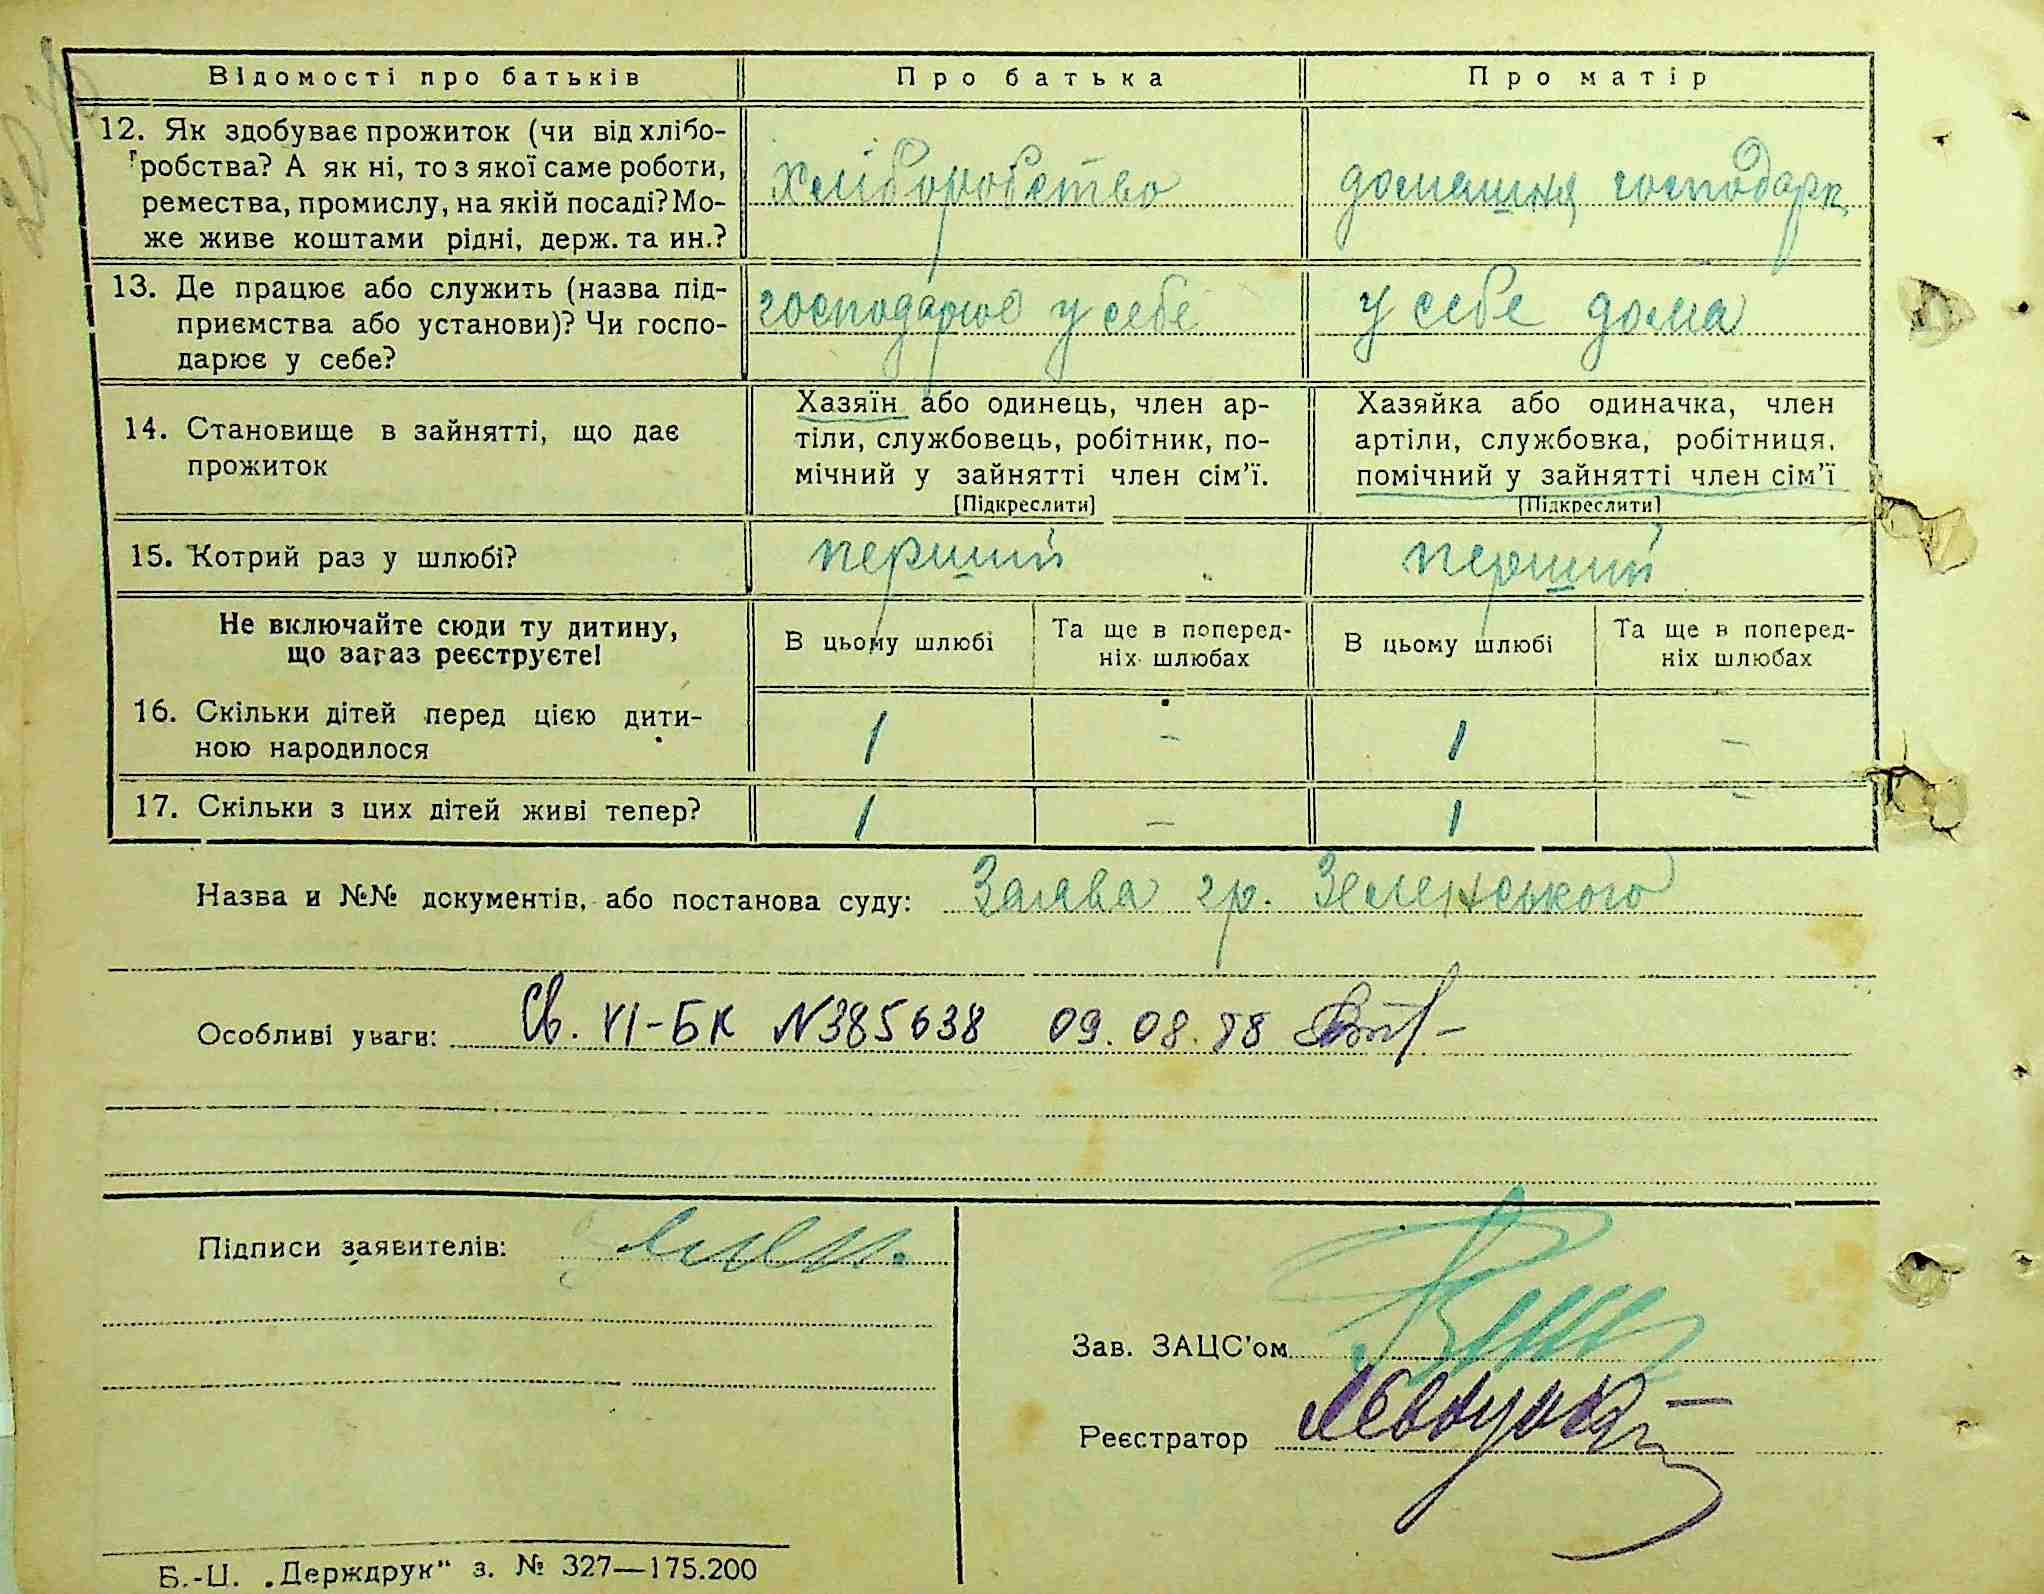 Відомості про батьків
Про батька
Про матір
12. Як здобуває прожиток (чи від хлібо-
робства? А як ні, то з якої саме роботи,
ремества, промислу, на якій посаді? Мо-
же живе коштами рідні, держ. та ин.?
хліборобство
домашня господарк.
13. Де працює або служить (назва під-
приємства або установи)? Чи госпо-
дарює у себе?
господарює у себе
у себе дома
14. Становище в зайнятті, що дає
прожиток
Хазяїн або одинець, член ар-
тіли, службовець, робітник, по-
мічний у зайнятті член сім'ї.
[Підкреслити]
Хазяйка або одиначка, член
артіли, службовка, робітниця,
помічний у зайнятті член сім'ї
[Підкреслити]
15. Котрий раз у шлюбі?
перший
перший
Не включайте сюди ту дитину,
що зараз реєструєте!
В цьому шлюбі
Та ще в поперед-
ніх шлюбах
В цьому шлюбі
Та ще в поперед-
ніх шлюбах
16. Скільки дітей перед цією дити-
ною народилося
1 – 1 –
17. Скільки з цих дітей живі тепер?
1 – 1 –
Назва и №№ документів, або постанова суду: Заява гр. Зеленського
Особливі уваги: Св. VI-БК N385638 09.08.88
Підписи заявителів:
Зав. ЗАЦС'ом
Реєстратор
Б.-Ц. „Держдрук" з. № 327—175.200